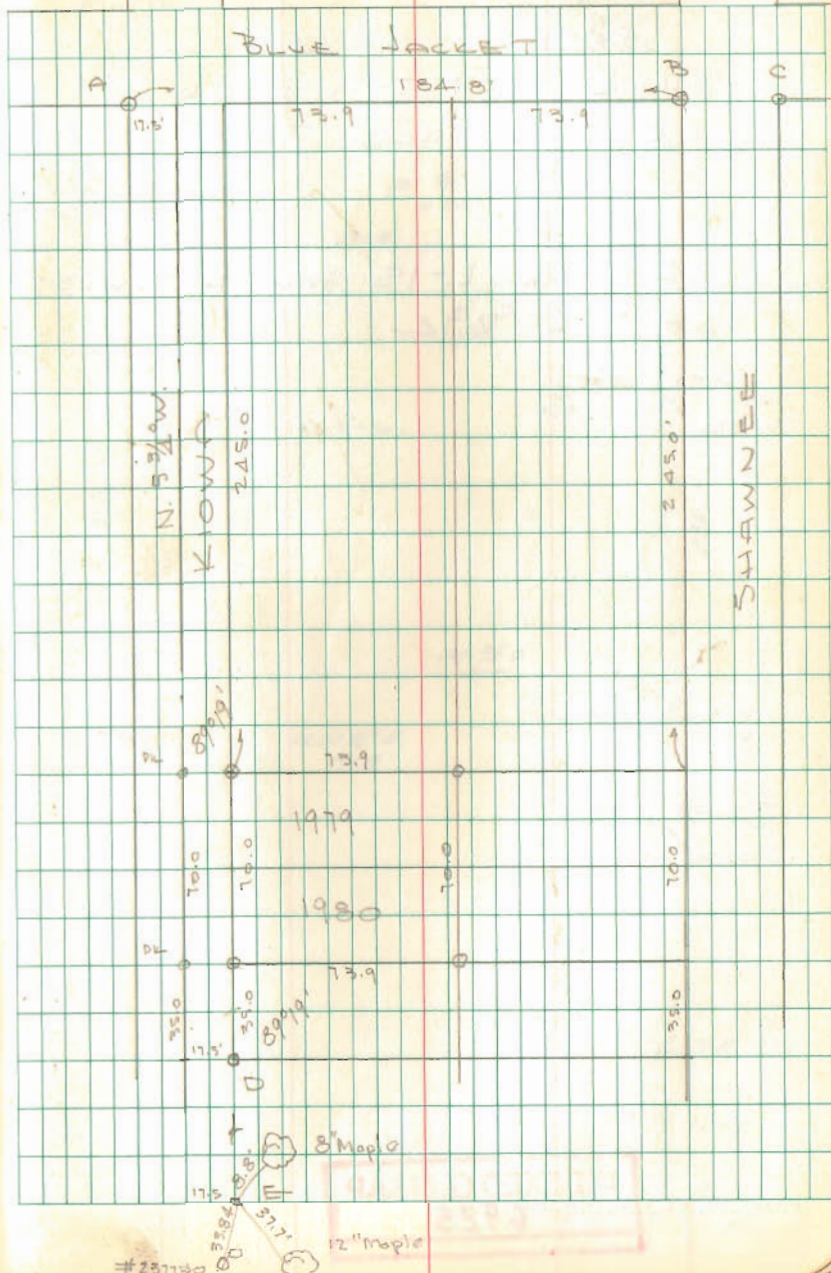 BLUE JACKET
A
B
C
184.8'
17.5'
73.9
73.9
N. 5 3/4° W.
KIOWA
245.0
245.0'
SHAWNEE
89°19'
73.9
1979
70.0
70.0
70.0
70.0
1980
73.9
35.0
35.0
89°19'
35.0
17.5'
8" Maple
8.8'
17.5
37.7'
12" Maple